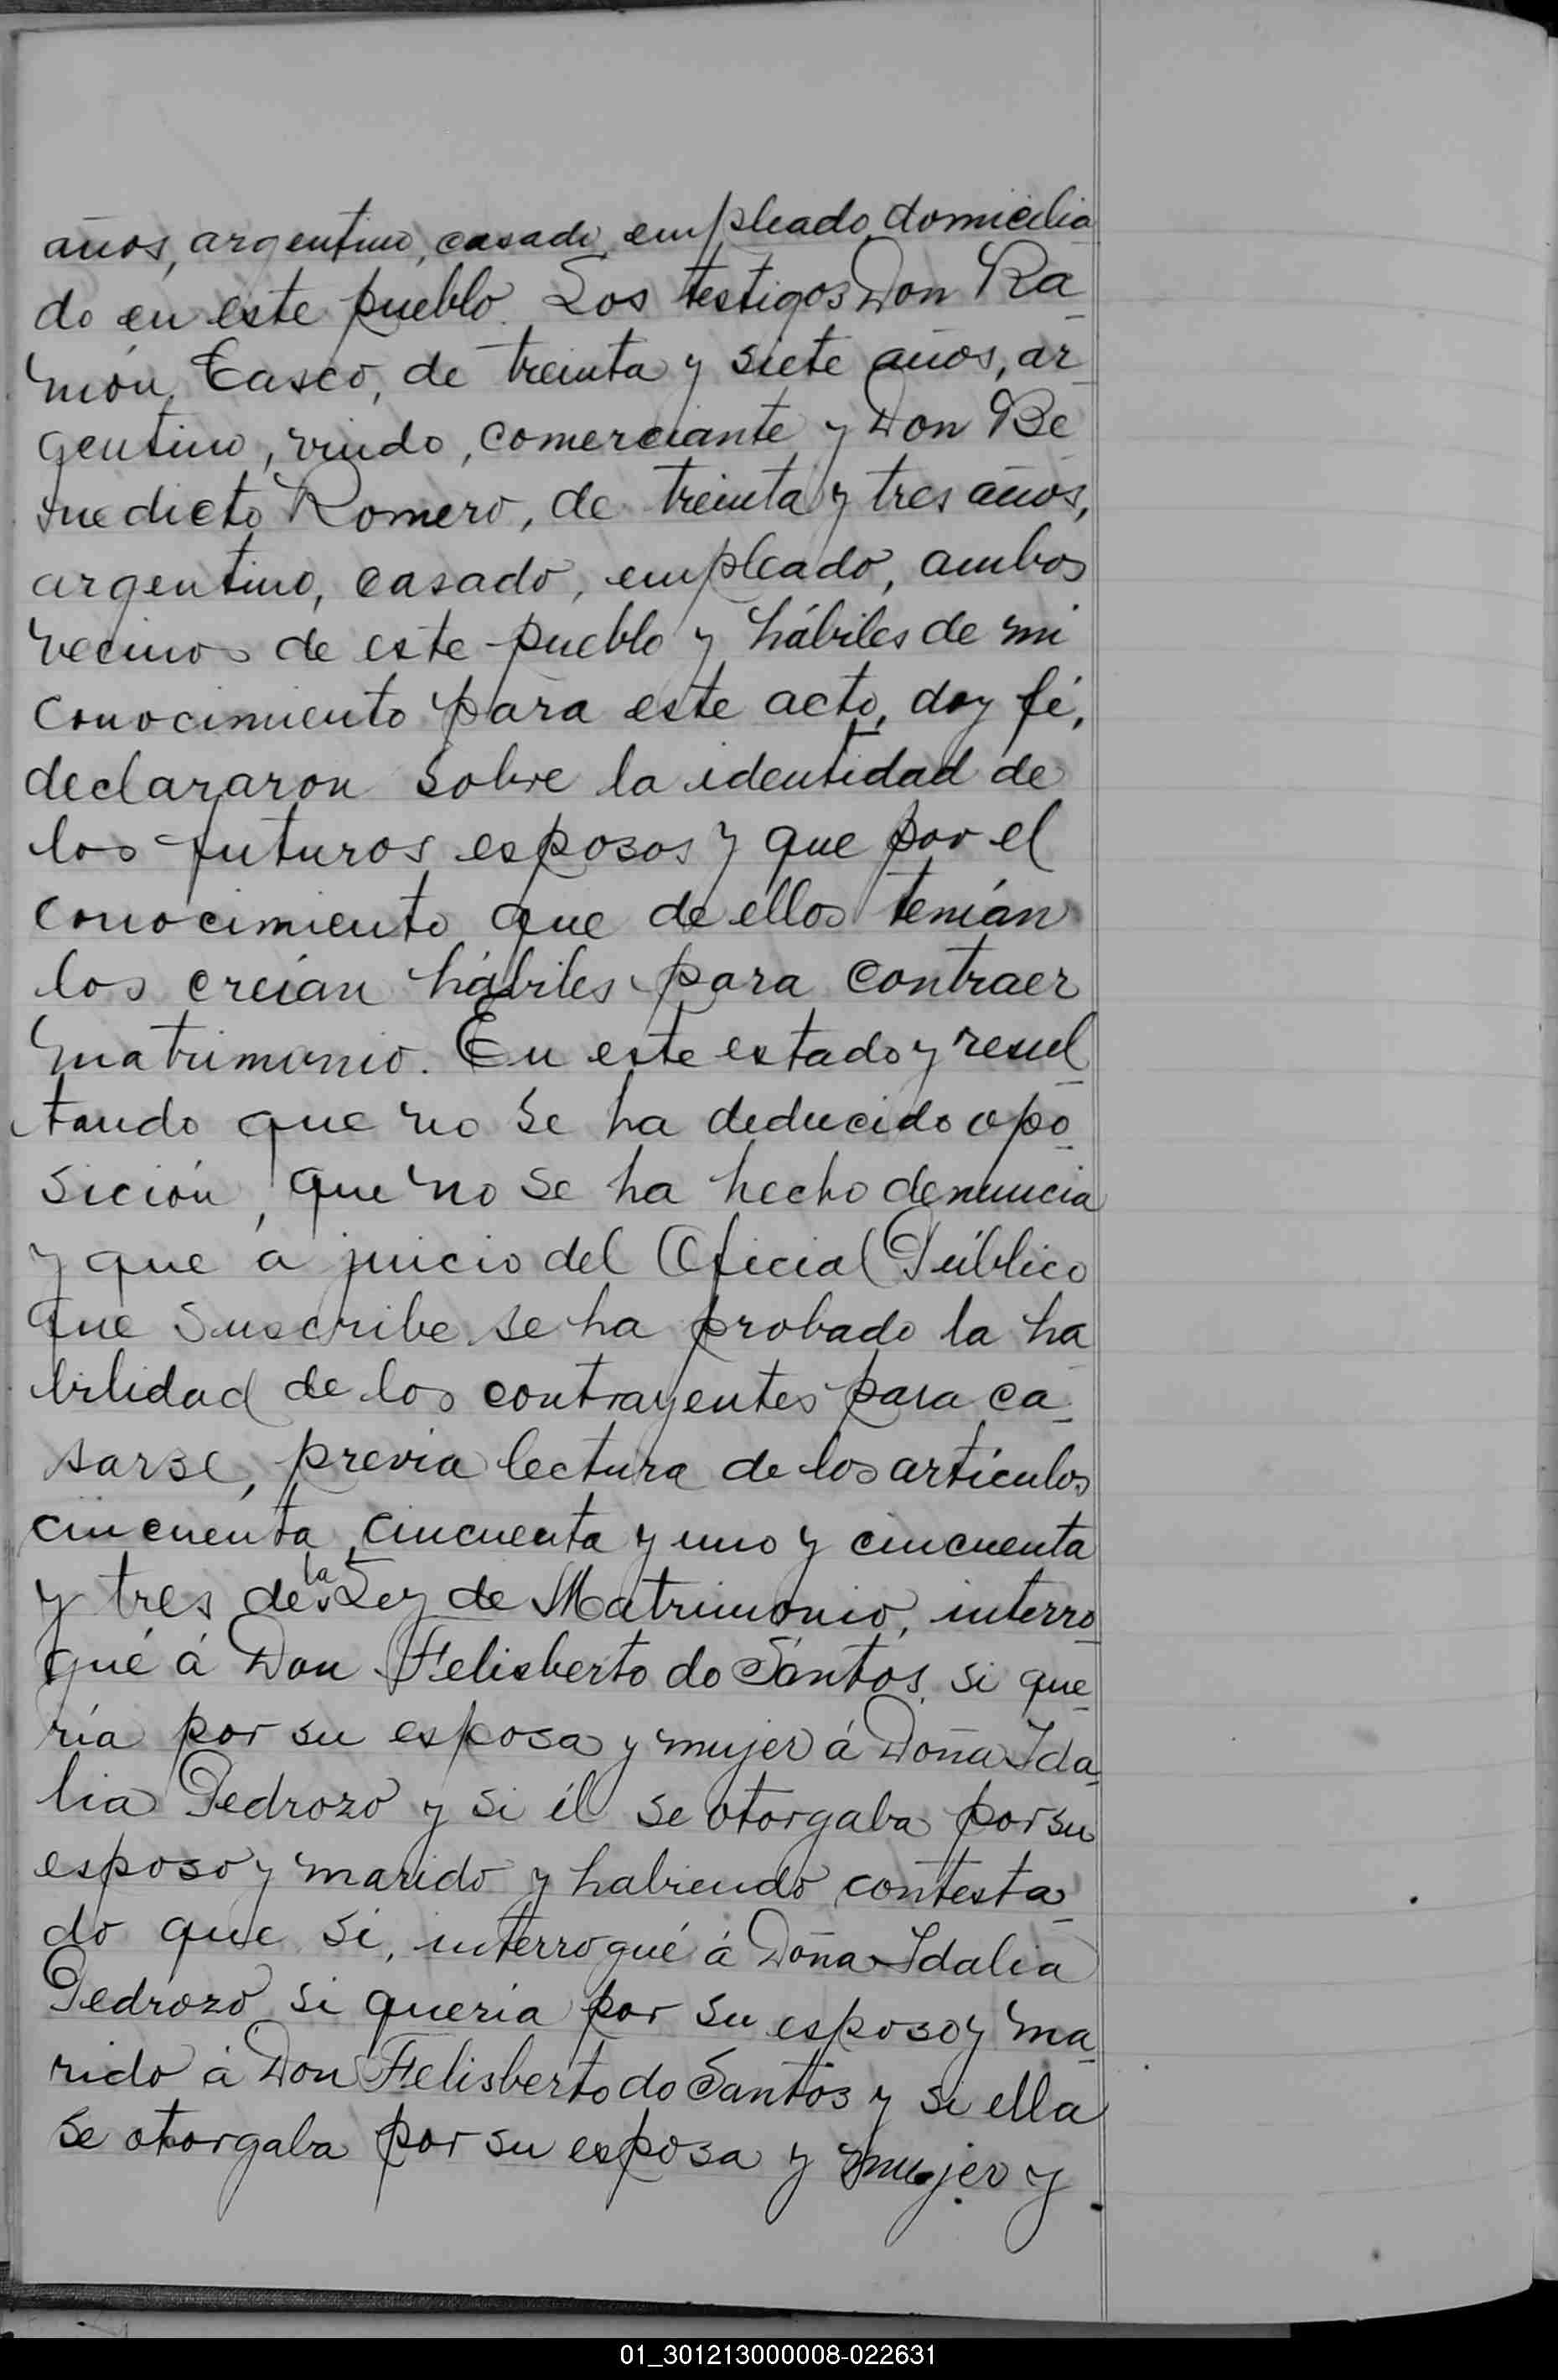 años, argentino, casado, empleado, domicilia
do en este pueblo. Los testigos Don Ra_
món Casco, de treinta y siete años, ar_
gentino, viudo, comerciante y Don Be
nedicto Romero, de treinta y tres años,
argentino, casado, empleado, ambos
vecinos de este pueblo y hábiles de mi
conocimiento para este acto, doy fé,
declararon sobre la identidad de
los futuros esposos y que por el
conocimiento que de ellos tenían
los creían hábiles para contraer
matrimonio. En este estado y resul_
tando que no se ha deducido opo_
sición, que no se ha hecho denuncia
y que á juicio del Oficial Público
que suscribe se ha probado la ha_
bilidad de los contrayentes para ca_
sarse, previa lectura de los artículos
cincuenta, cincuenta y uno y cincuenta
y tres de la Ley de Matrimonio, interro_
gué á Don Felisberto do Santos si que_
ría por su esposa y mujer á Doña Ida_
lia Pedrozo y si él se otorgaba por su
esposo y marido y habiendo contesta_
do que si, interrogué á Doña Idalia
Pedrozo si quería por su esposo y ma_
rido á Don Felisberto do Santos y si ella
se otorgaba por su esposa y mujer y
01_301213000008-022631